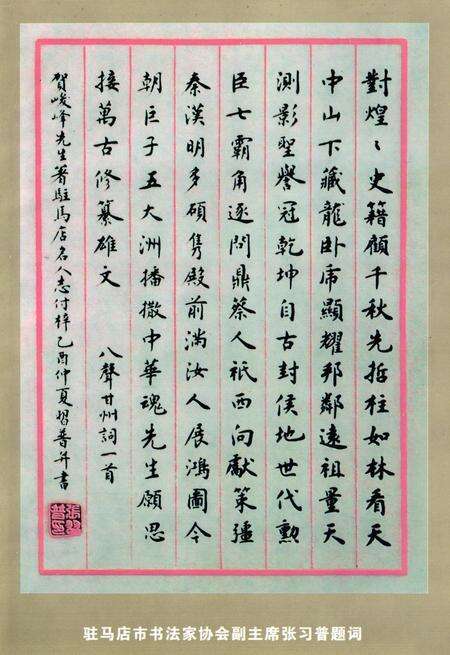 對煌〻史籍顧千秋先哲柱如林看天
中山下藏龍卧虎顯耀邦鄰遠祖量天
測影聖譽冠乾坤自古封侯地世代勳
臣七霸角逐問鼎蔡人祇西向獻策彊
秦漢明多碩隽殿前滿汝人展鴻圖今
朝巨子五大洲播撒中華魂先生願思
接萬古修纂雄文 八聲甘州詞一首
賀峻峰先生著駐馬店名人志付梓乙酉仲夏習普并書
驻马店市书法家协会副主席张习普题词